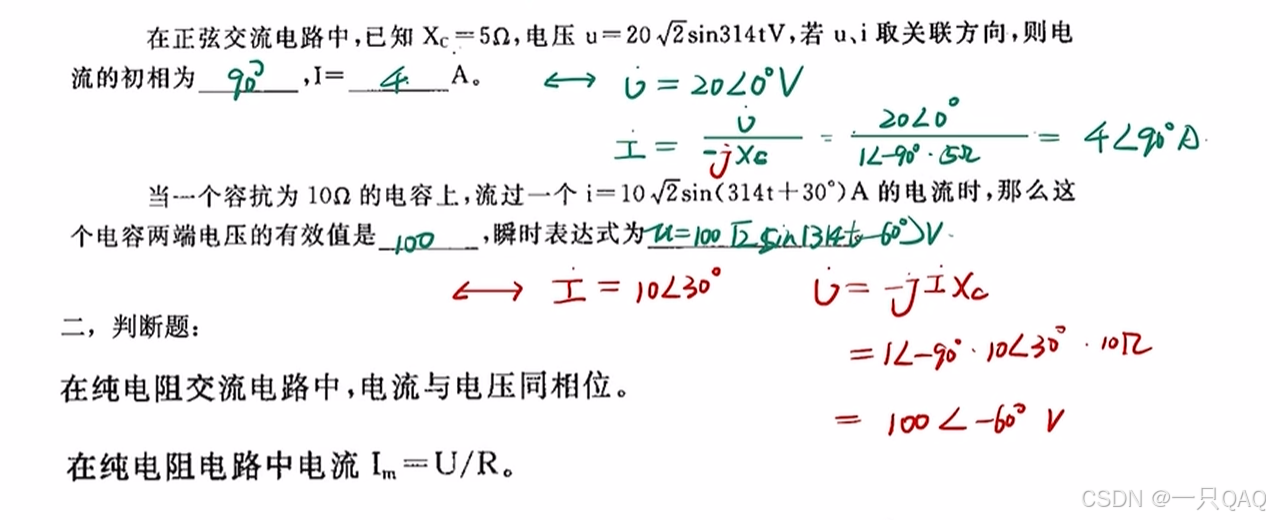 在正弦交流电路中,已知 X_C=5Ω,电压 u=20√2sin314tV,若 u、i 取关联方向,则电
流的初相为 90° ,I= 4 A。 ⟷ U̇ = 20∠0° V
İ = U̇/(-jXc) = 20∠0°/(1∠-90°·5Ω) = 4∠90° A.
当一个容抗为 10Ω 的电容上,流过一个 i=10√2sin(314t+30°)A 的电流时,那么这
个电容两端电压的有效值是 100 ,瞬时表达式为 u=100√2 sin(314t-60°)V.
⟷ İ = 10∠30° U̇ = -jİXc
二，判断题：
= 1∠-90°·10∠30°·10Ω
在纯电阻交流电路中,电流与电压同相位。
= 100∠-60° V
在纯电阻电路中电流 I_m=U/R。
CSDN @一只QAQ